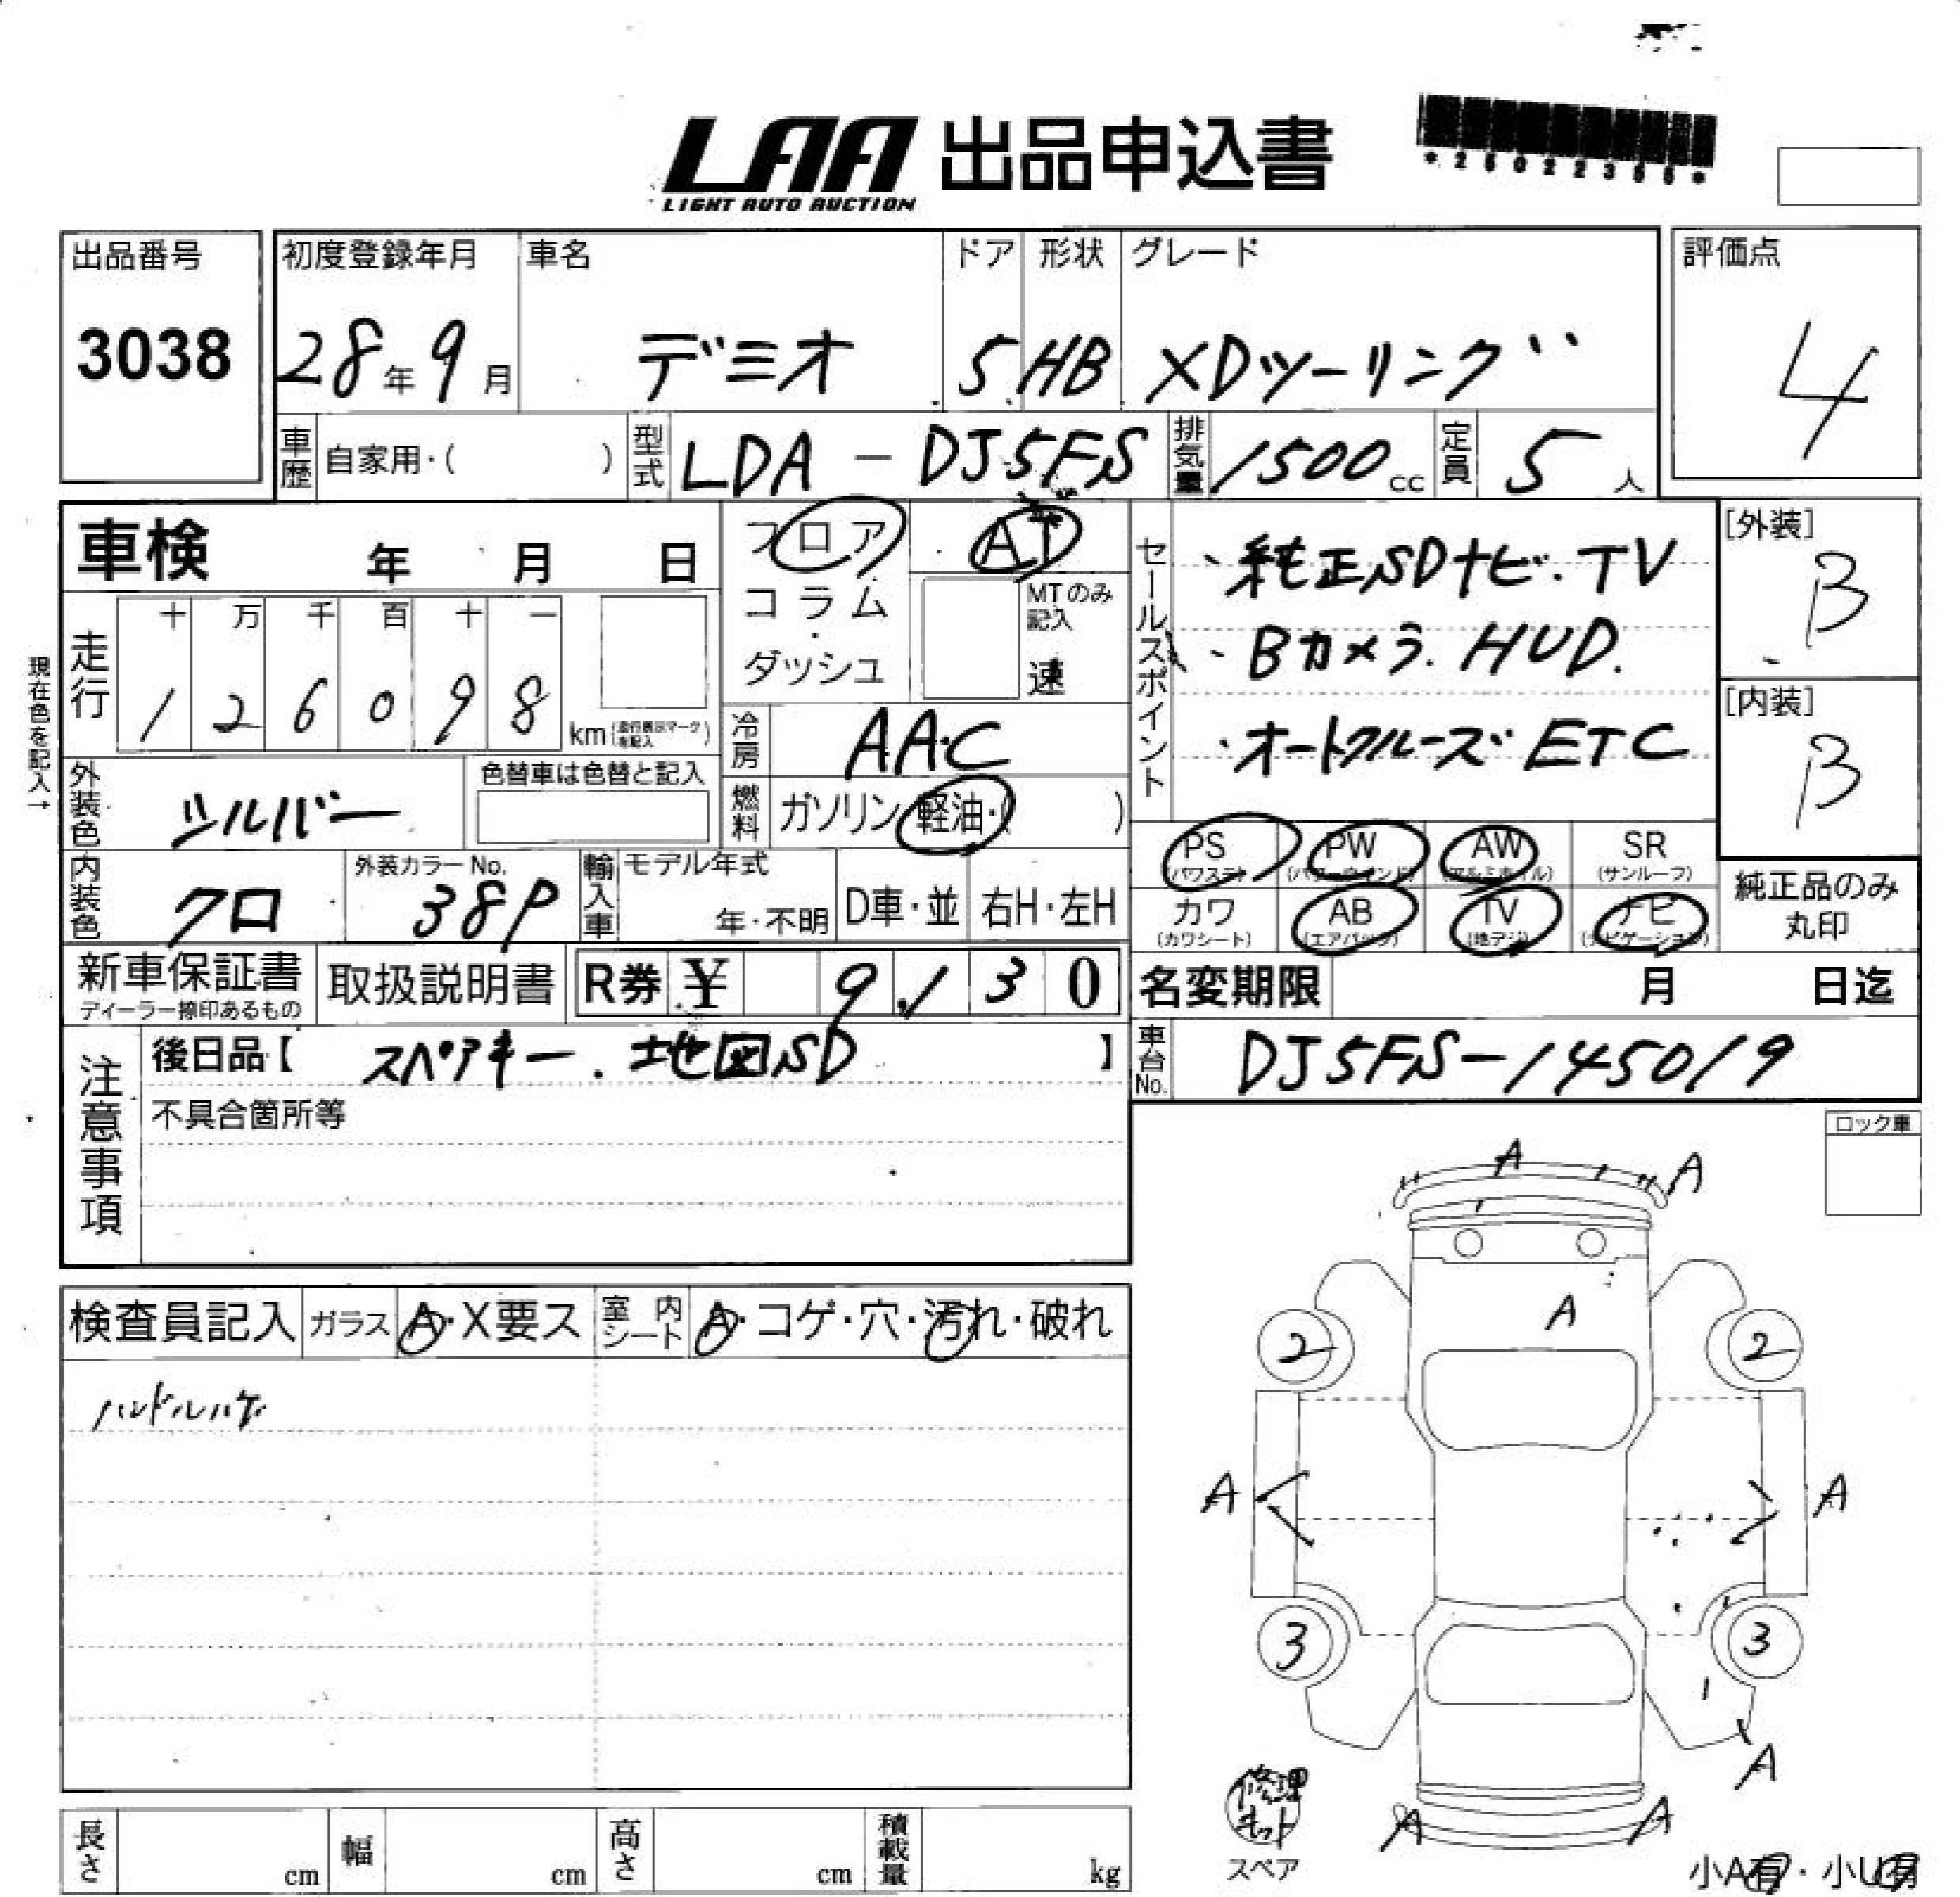 LAA 出品申込書
LIGHT AUTO AUCTION
*26022356*
出品番号 初度登録年月 車名 ドア 形状 グレード 評価点
3038 28年9月 デミオ 5 HB XDツーリング 4
車歴 自家用・( ) 型式 LDA-DJ5FS 排気量 1500cc 定員 5人
車検 年 月 日
フロア AT
コラム・ MTのみ記入
ダッシュ 速
セールスポイント
・純正SDナビ.TV
・Bカメラ.HUD.
・オートクルーズ ETC
[外装]
B
[内装]
B
現在色を記入→
走行 十 万 千 百 十 一
1 2 6 0 9 8 km(走行表示マークを記入)
冷房 AAC
外装色 シルバー 色替車は色替と記入
燃料 ガソリン・軽油・( )
PS (パワステ) PW (パワーウインド) AW (アルミホイル) SR (サンルーフ)
カワ (カワシート) AB (エアバック) TV (地デジ) ナビ (ナビゲーション)
純正品のみ
丸印
内装色 クロ 外装カラーNo. 38P 輸入車 モデル年式 年・不明 D車・並 右H・左H
新車保証書 取扱説明書 R券 ¥ 9,130 名変期限 月 日迄
ディーラー捺印あるもの
注意事項
後日品【 スペアキー.地図SD 】 車台No. DJ5FS-145019
不具合箇所等
ロック車
A A
A
2 2
A A
3 3
A
A A
修理キット
スペア
小A有・小U有
検査員記入 ガラス A・X要ス 室内シート A・コゲ・穴・汚れ・破れ
ハンドルハゲ
長さ cm 幅 cm 高さ cm 積載量 kg